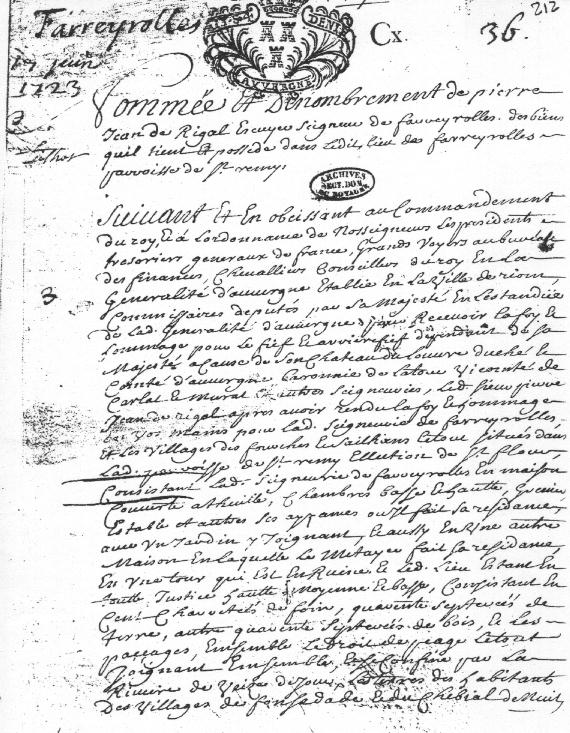 Farreyrolles
17 juin
1723
212
DENIE
AUVERGNE
Cx.
36.
3
hommée Et Denombrement de pierre
Jean de Rigal Escuyer Seigneur de faveyrolles. des biens
quil tient Et possede dans ledit lieu des farreyrolles
parroisse de St remy.
ARCHIVES
SECT. DOM.
DU ROYAUME
Suivant Et En obeissant au Commandement
du roy, Et a Lordonnance de Nosseigneurs Les presidents
tresoriers generaux de france, Grands Voyers au bureau
des finances, Chevalliers Conseillers du roy En La
Generalité d'auvergne Etablie En La Ville de riom,
Commissaires deputés par Sa Majesté En Lestandüe
de Lad. Generalité d'auvergne pour Recevoir La foy Et
hommage pour le fief Et arrierefief dependant de Sa
Majesté a Cause de Son Chateau du Louvre duché Et
Comté d'auvergne baronnie de Latour Vicomté de
Carlat Et Murat Et autres Seigneuries, Led. Sieur pierre
Jean de rigal apres avoir rendu La foy Et hommage
En Vos mains pour Lad. Seigneurie de farreyrolles.
Et Les Villages des fourches Et Sailhens Letout Situés dans
Lad. parroisse de St remy Ellution de St flour,
Consistant Lad. Seigneurie de faveyrolles En maison
Couverte a thuille, Chambres basse Et haulte,
Estable Et autres Ses aysames ou Il fait Sa residance,
avec Un Jardin y Joignant, Et aussy En Une autre
Maison En Laquelle Le Metayer fait Sa residance,
En Une tour qui Est En Ruine Et Led. Lieu Estant En
toutte Justice haulte Moyenne Et basse, Consistant En
Cent Charretées de foin, quarente Septerées de
terre, autre quarente Septerées de bois, Et Les
paccages, Ensemble Le droit de peage Letout
Joignant Ensemble, Et Se Confine par La
Riviere de Les terres des habitants
Des Villages de Et du de Nuit